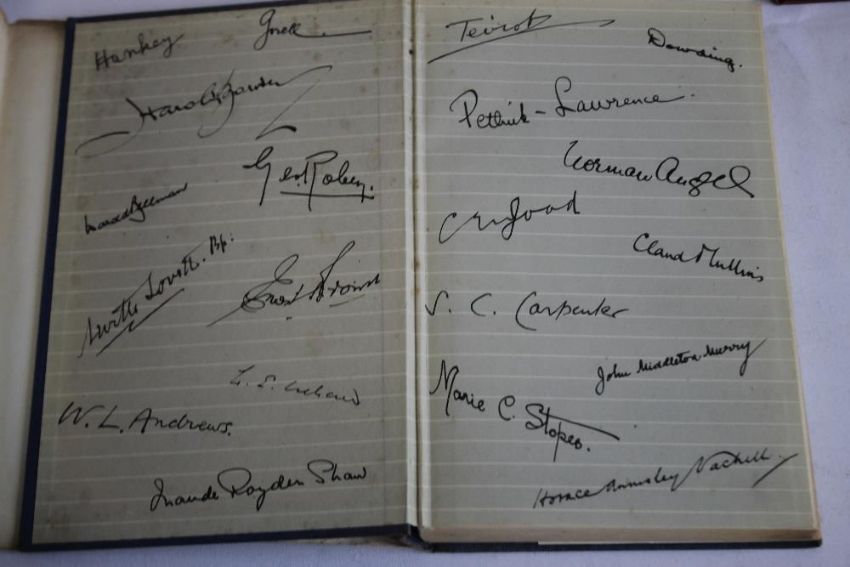 Hankey
Gorell
Harold Bowden
Geo. Robey.
Neville Lovett. Bp.
W. L. Andrews.
Maude Royden Shaw
Teviot
Dowding.
Pethick-Lawrence.
Norman Angell
Claud Mullins
S. C. Carpenter
John Middleton Murry
Marie C. Stopes.
Horace Annesley Vachell.